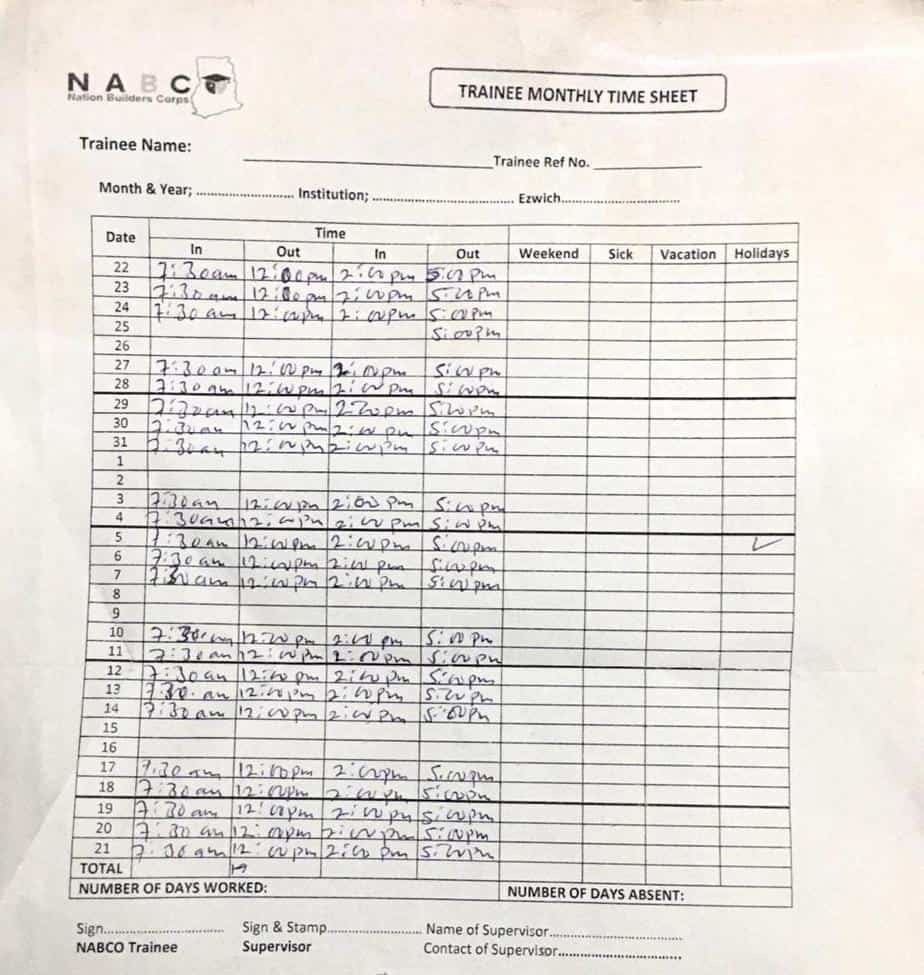 NABC
Nation Builders Corps
TRAINEE MONTHLY TIME SHEET
Trainee Name: ____________________ Trainee Ref No. __________
Month & Year; .......................... Institution; ...................................... Ezwich...............................
Date Time
In Out In Out Weekend Sick Vacation Holidays
22 7:30am 12:00pm 2:00pm 5:00pm
23 7:30am 12:00pm 2:00pm 5:00pm
24 7:30am 12:00pm 2:00pm 5:00pm
25 5:00pm
26
27 7:30am 12:00pm 2:00pm 5:00pm
28 7:30am 12:00pm 2:00pm 5:00pm
29 7:30am 12:00pm 2:00pm 5:00pm
30 7:30am 12:00pm 2:00pm 5:00pm
31 7:30am 12:00pm 2:00pm 5:00pm
1
2
3 7:30am 12:00pm 2:00pm 5:00pm
4 7:30am 12:00pm 2:00pm 5:00pm
5 7:30am 12:00pm 2:00pm 5:00pm ✓
6 7:30am 12:00pm 2:00pm 5:00pm
7 7:30am 12:00pm 2:00pm 5:00pm
8
9
10 7:30am 12:00pm 2:00pm 5:00pm
11 7:30am 12:00pm 2:00pm 5:00pm
12 7:30am 12:00pm 2:00pm 5:00pm
13 7:30am 12:00pm 2:00pm 5:00pm
14 7:30am 12:00pm 2:00pm 5:00pm
15
16
17 7:30am 12:00pm 2:00pm 5:00pm
18 7:30am 12:00pm 2:00pm 5:00pm
19 7:30am 12:00pm 2:00pm 5:00pm
20 7:30am 12:00pm 2:00pm 5:00pm
21 7:30am 12:00pm 2:00pm 5:00pm
TOTAL
NUMBER OF DAYS WORKED: NUMBER OF DAYS ABSENT:
Sign.............................. Sign & Stamp........................ Name of Supervisor..................................
NABCO Trainee Supervisor Contact of Supervisor................................